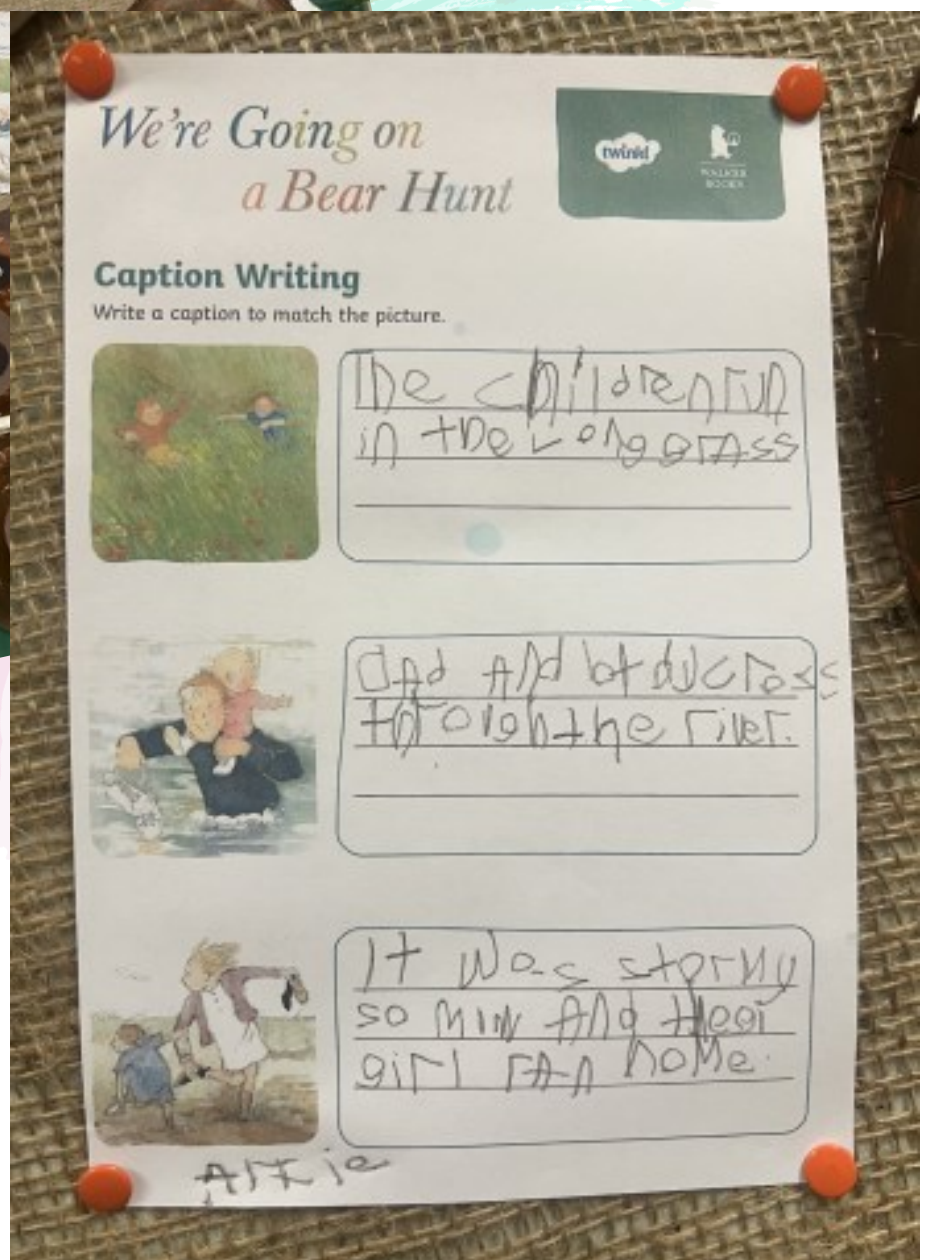 We're Going on
a Bear Hunt
twinkl
WALKER
BOOKS
Caption Writing
Write a caption to match the picture.
The children run
in the Long grass
Dad and cross
the river.
It was stormy
so and
girl ran home.